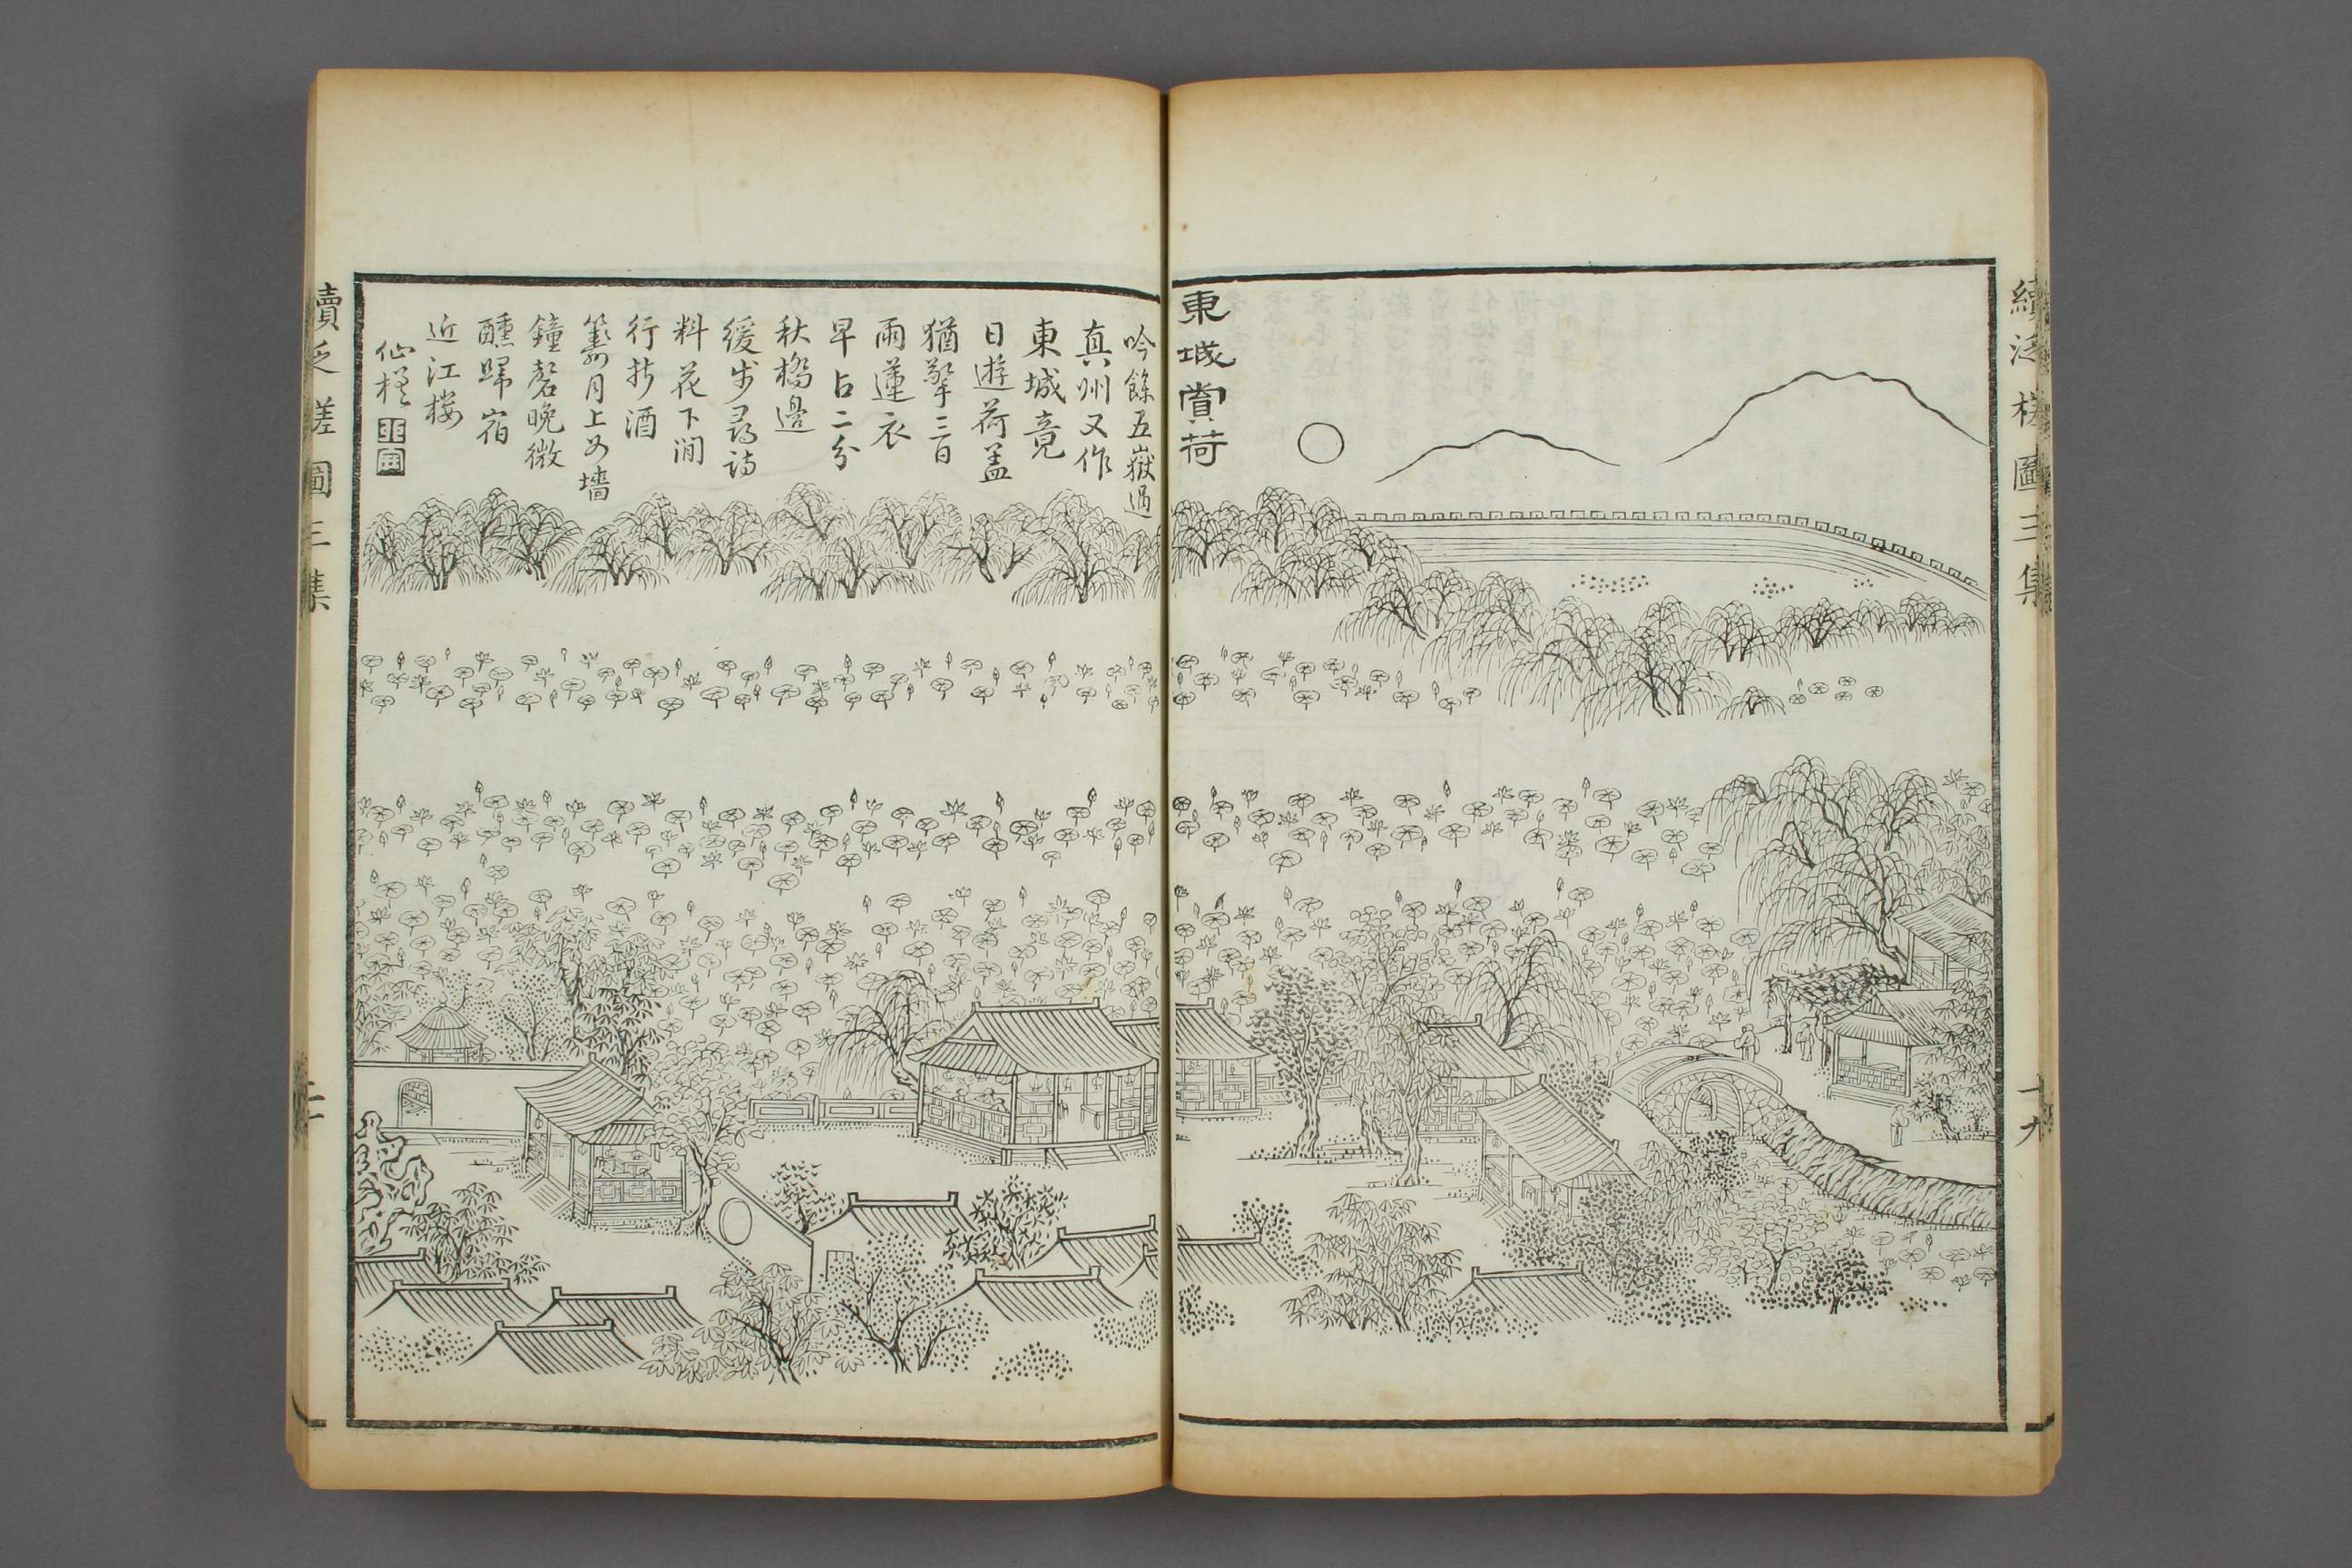 續泛槎圖三集
十九
東城賞荷
吟餘五嶽過
真州又作
東城竟
日遊荷蓋
猶擎三日
雨蓮衣
早占二分
秋橋邊
緩步尋詩
料花下閒
行折酒
籌月上女墻
鐘磬晚微
醺歸宿
近江樓
仙槎
續泛槎圖三集
二十